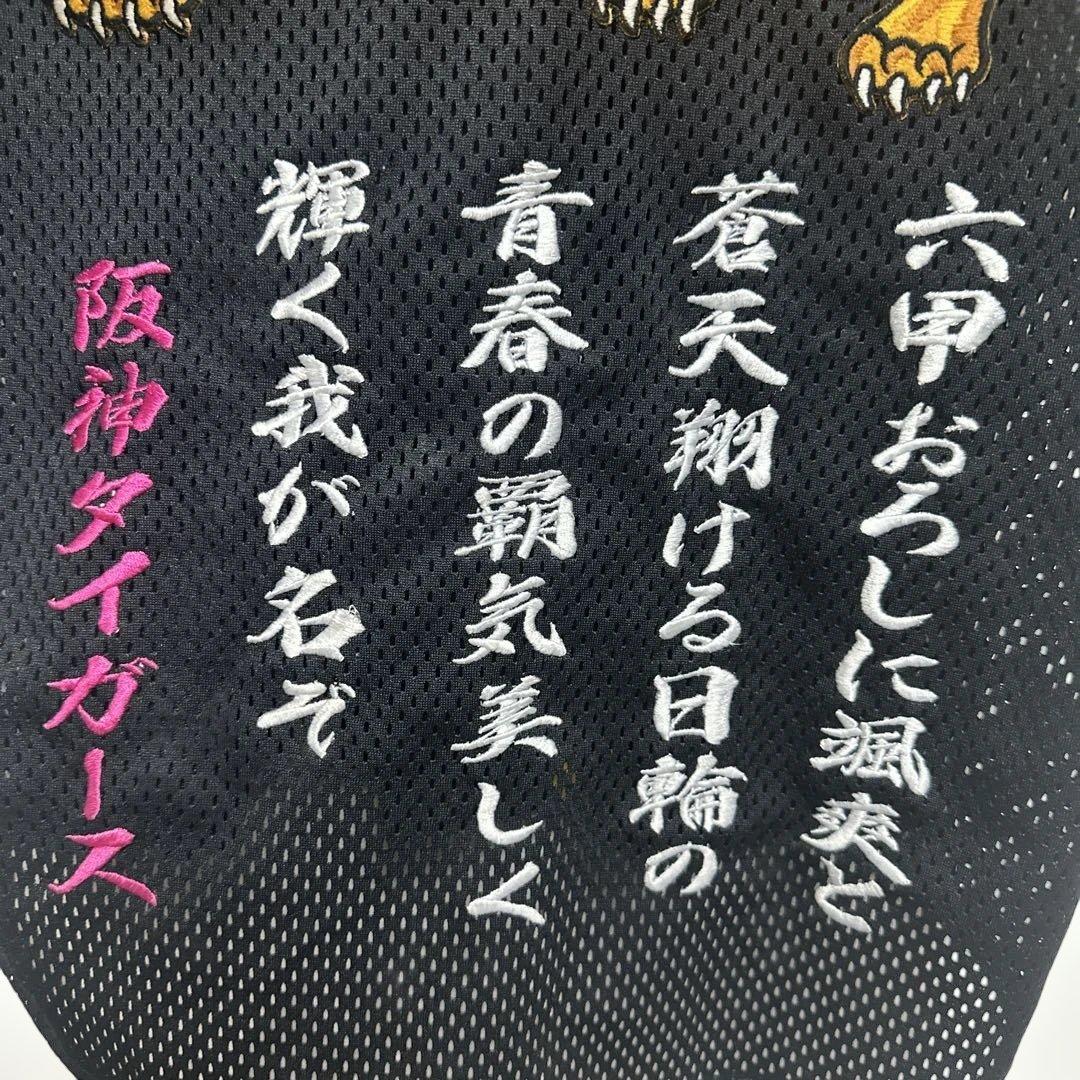 六甲おろしに颯爽と
蒼天翔ける日輪の
青春の覇気美しく
輝く我が名ぞ
阪神タイガース